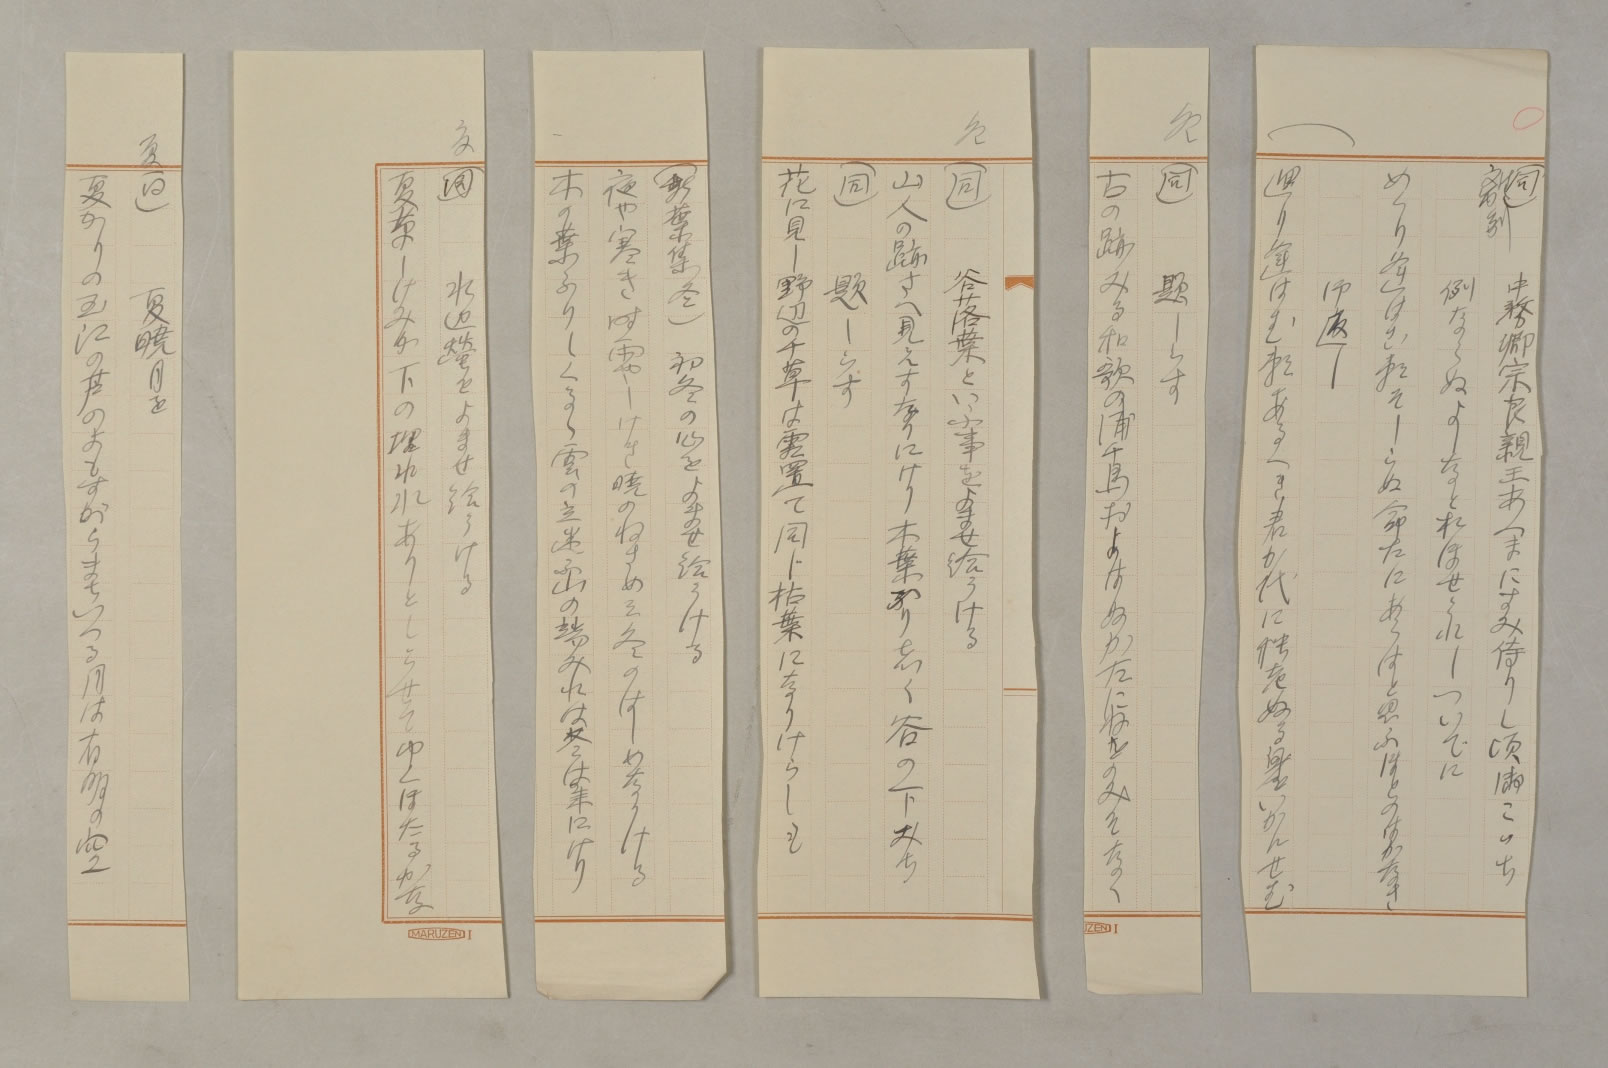 同
離別
中務卿宗良親王あつまにすみ侍りし頃御こゝち
例ならぬよしなときかせられしついでに
めくり逢はむ頼そしらぬ命たにあらはと思ふほとのはかなさ
御返し
廻り逢はむ頼あるへき君か代に
いかにせむ
冬
同 題しらす
古の跡みる和歌の浦千鳥およはぬかたに
冬
同 谷落葉といふ事をよませ給うける
山人の跡さへ見えすなりにけり木葉ふりしく谷の下みち
同 題しらす
花に見し野辺の千草は霜置て同じ枯葉になりけらしも
新葉集 冬 初冬の心をよませ給うける
夜や寒き時雨やしけき暁のねさめそ冬のはしめなりける
木の葉ふりしくるゝ雲の立迷ふ山の端みれは冬は来にけり
夏
同 水辺蛍をよませ給うける
夏草のしけみか下の埋れ水ありとしらせて行くほたるかな
MARUZEN I
夏
同 夏暁月を
夏かりの玉江の芦のよもすからまちいつる月は有明の空